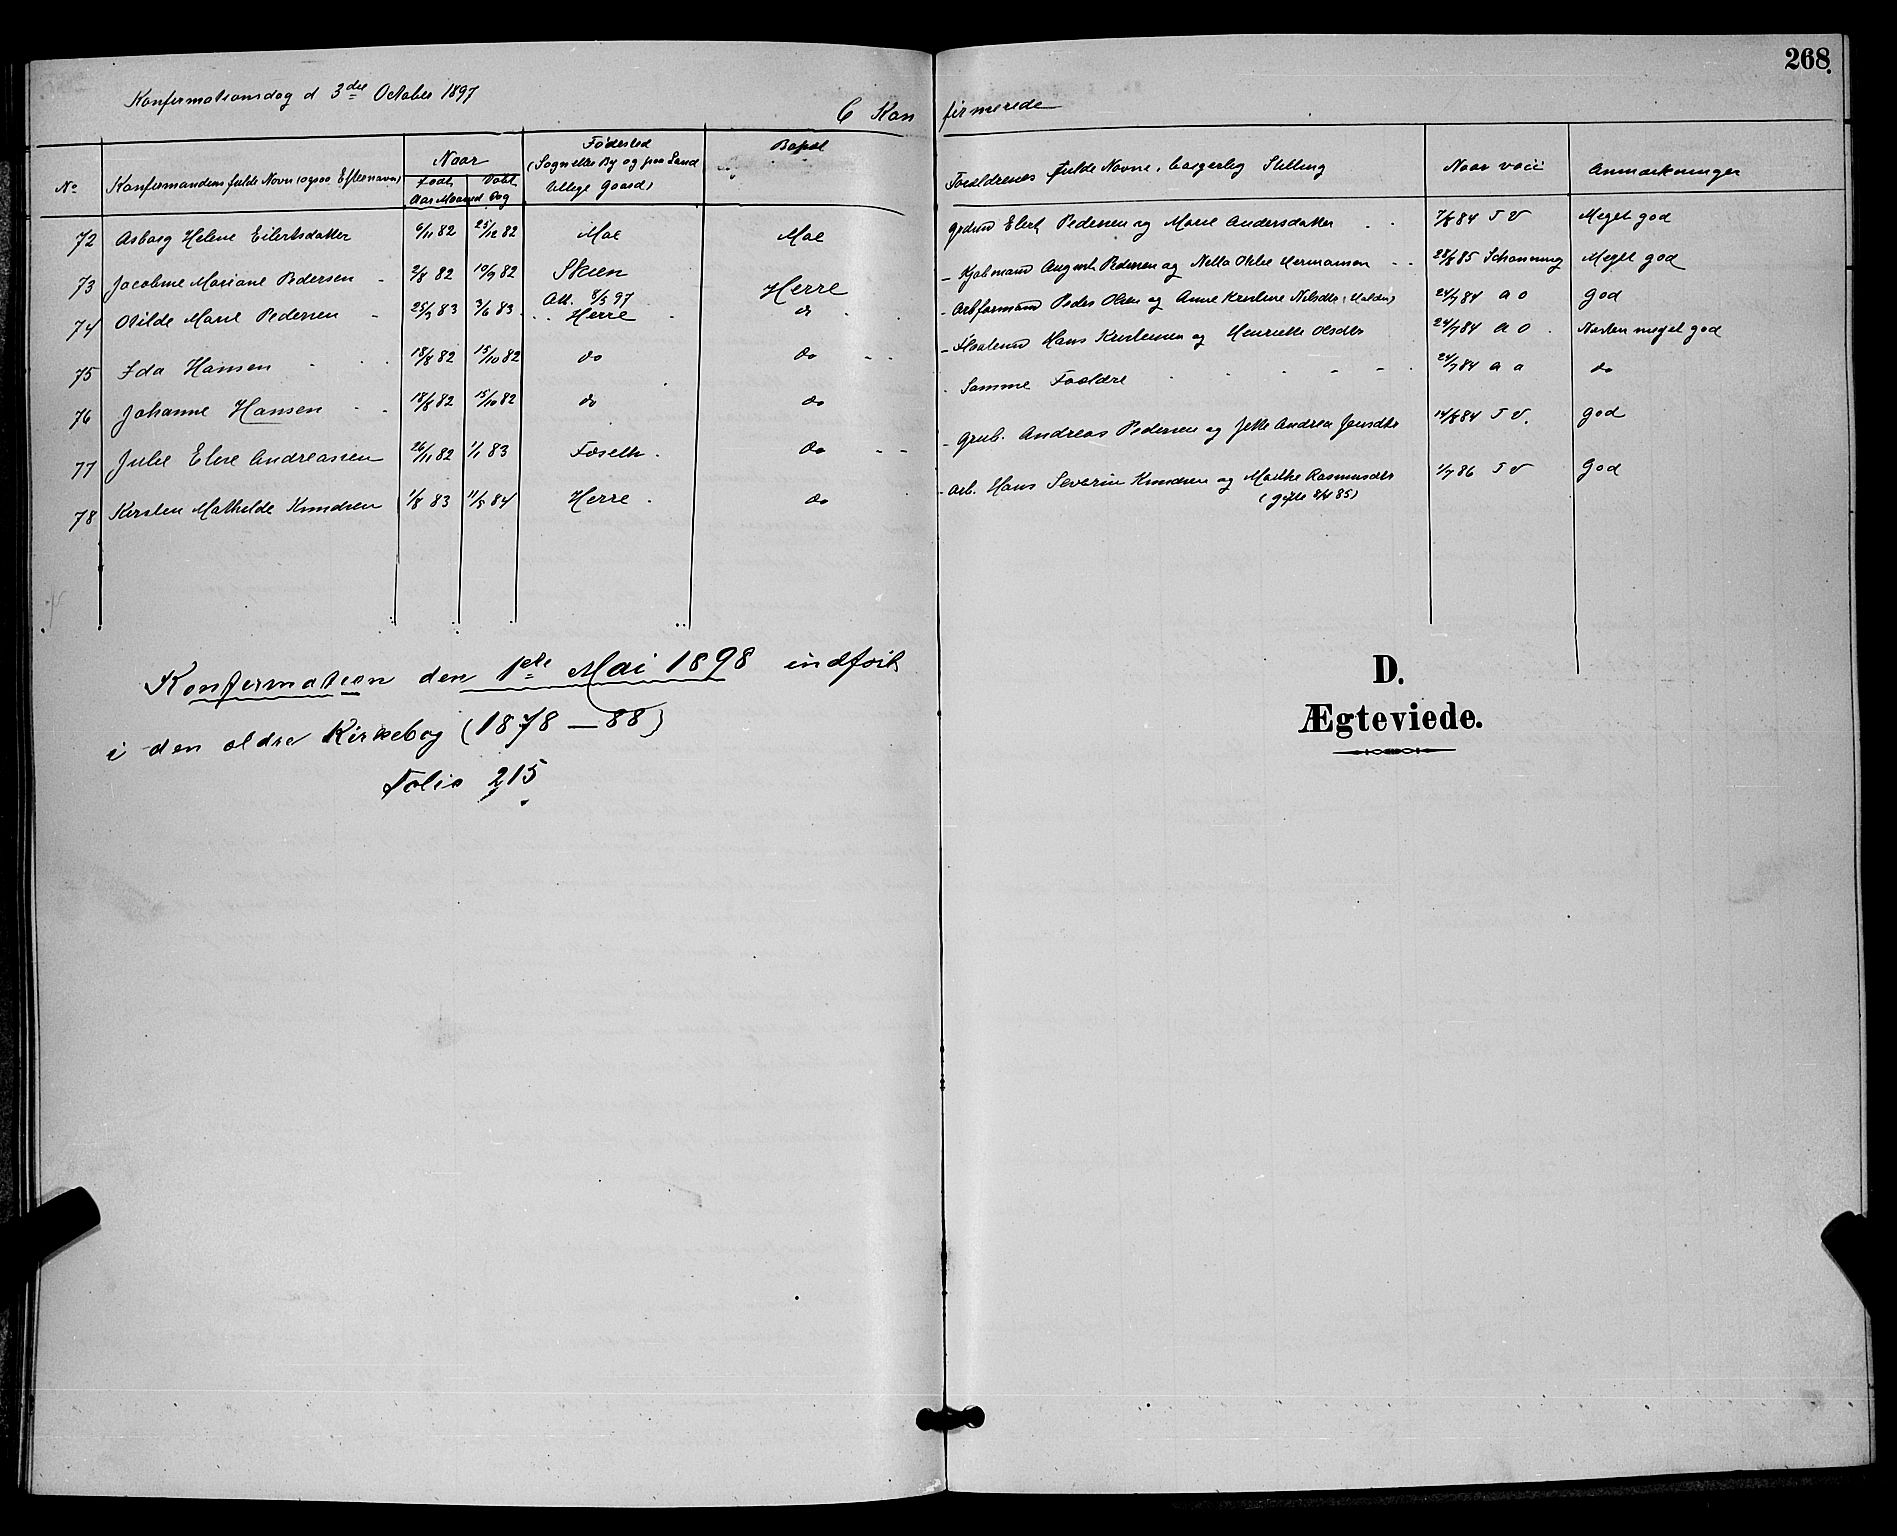 268.
Konfirmationsdag d 3die October 1897
C Kon firmerede
No
Konfirmandens fulde Navn (ogsaa Efternavn)
Naar
Født Døbt
Aar Maaned Dag
Fødested
(Sogn eller By og paa Land
tillige Gaard)
Bopæl
Forældrenes fulde Navne, borgerlig Stilling
Naar vacc
Anmærkninger
72 Asborg Helene Eilertsdatter 6/11 82 25/12 82 Mæla Gdmd Elert Pedersen og Marie Andersdatter 7/8 84 T V Meget god
73 Jacobine Mariane Pedersen 2/8 82 10/9 82 Skien Herre Kjøbmand August Pedersen og Netta Olise Hermansen 28/8 85 Schanning Meget god
Att. 8/5 97
74 Otilde Marie Pedersen 25/3 83 3/6 83 Herre do Arbformand Peder Olsen og Anne Kristine Nilsdtr 24/7 84 a o God
75 Ida Hansen 18/8 82 15/10 82 do do Hans Kristensen og Henriette Olsdtr 24/7 84 a o Næsten meget god
76 Johanne Hansen 18/8 82 15/10 82 do do Samme Forældre 24/7 84 a o do
77 Julie Elise Andreassen 26/11 82 1/1 83 Foseth do Grub. Andreas Pedersen og Jette Andrea Jensdtr 14/8 84 T V. God
78 Kirsten Mathilde Knudsen 1/8 83 11/5 84 Herre do Arb. Hans Severin Knudsen og Marthe Rasmusdtr 1/7 86 T V God
(gifte 8/4 85)
Konfirmation den 1ste Mai 1898 indført
i den ældre Kirkebog (1878 — 88)
Folio 215
D.
Ægteviede.